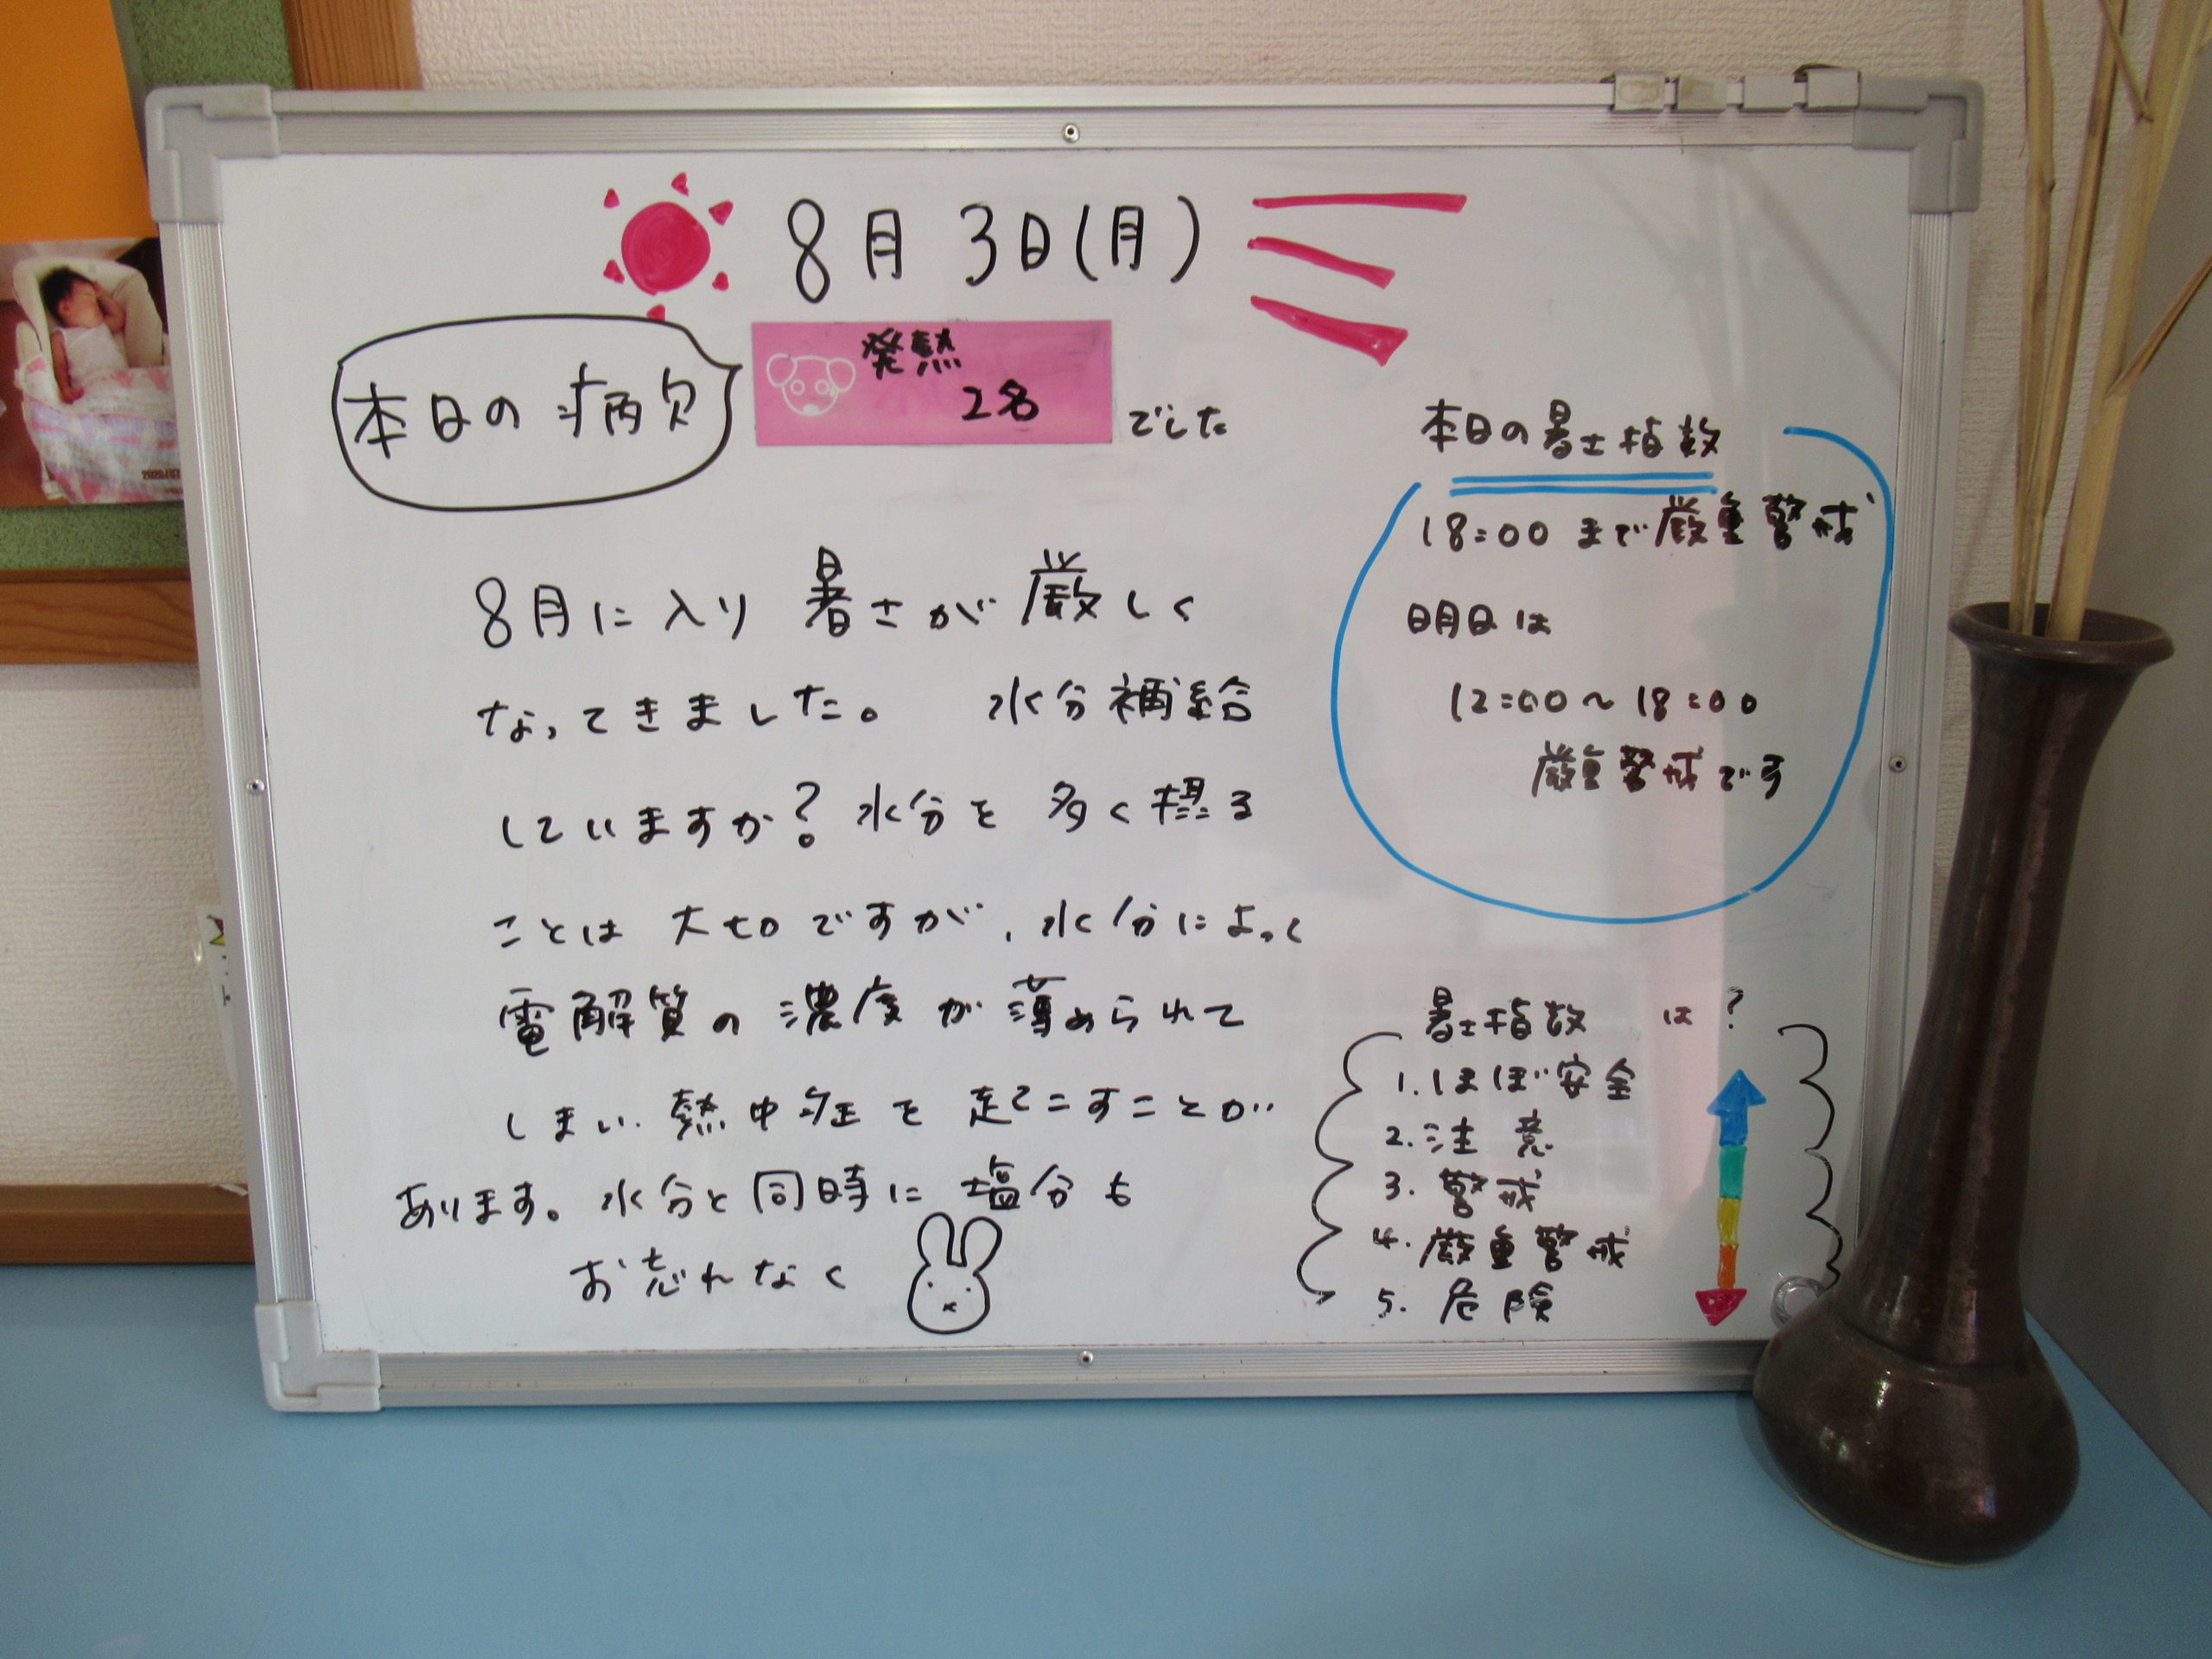 8月3日(月)
本日の病欠
発熱
2名
でした
8月に入り 暑さが厳しく
なってきました。 水分補給
していますか? 水分を多く摂る
ことは大切ですが、水分によって
電解質の濃度が薄められて
しまい、熱中症を起こすことが
あります。水分と同時に塩分も
お忘れなく
本日の暑さ指数
18:00まで厳重警戒
明日は
12:00～18:00
厳重警戒です
暑さ指数 は?
1.ほぼ安全
2.注意
3.警戒
4.厳重警戒
5.危険